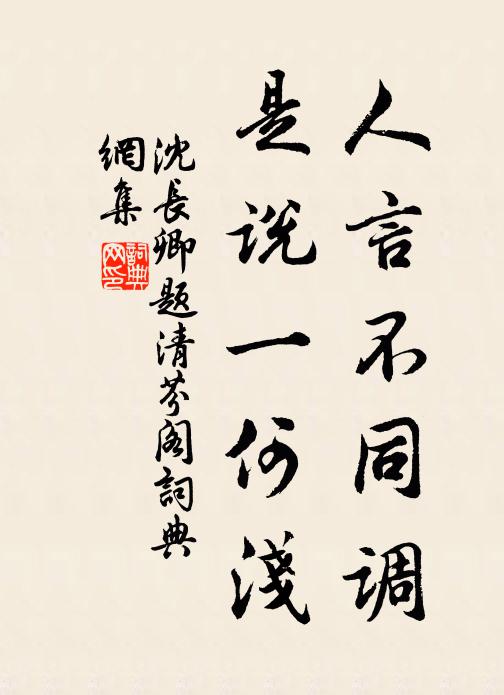 人言不同调
是说一何淺
沈長卿題清芬阁詞典
網集
詞典
网印